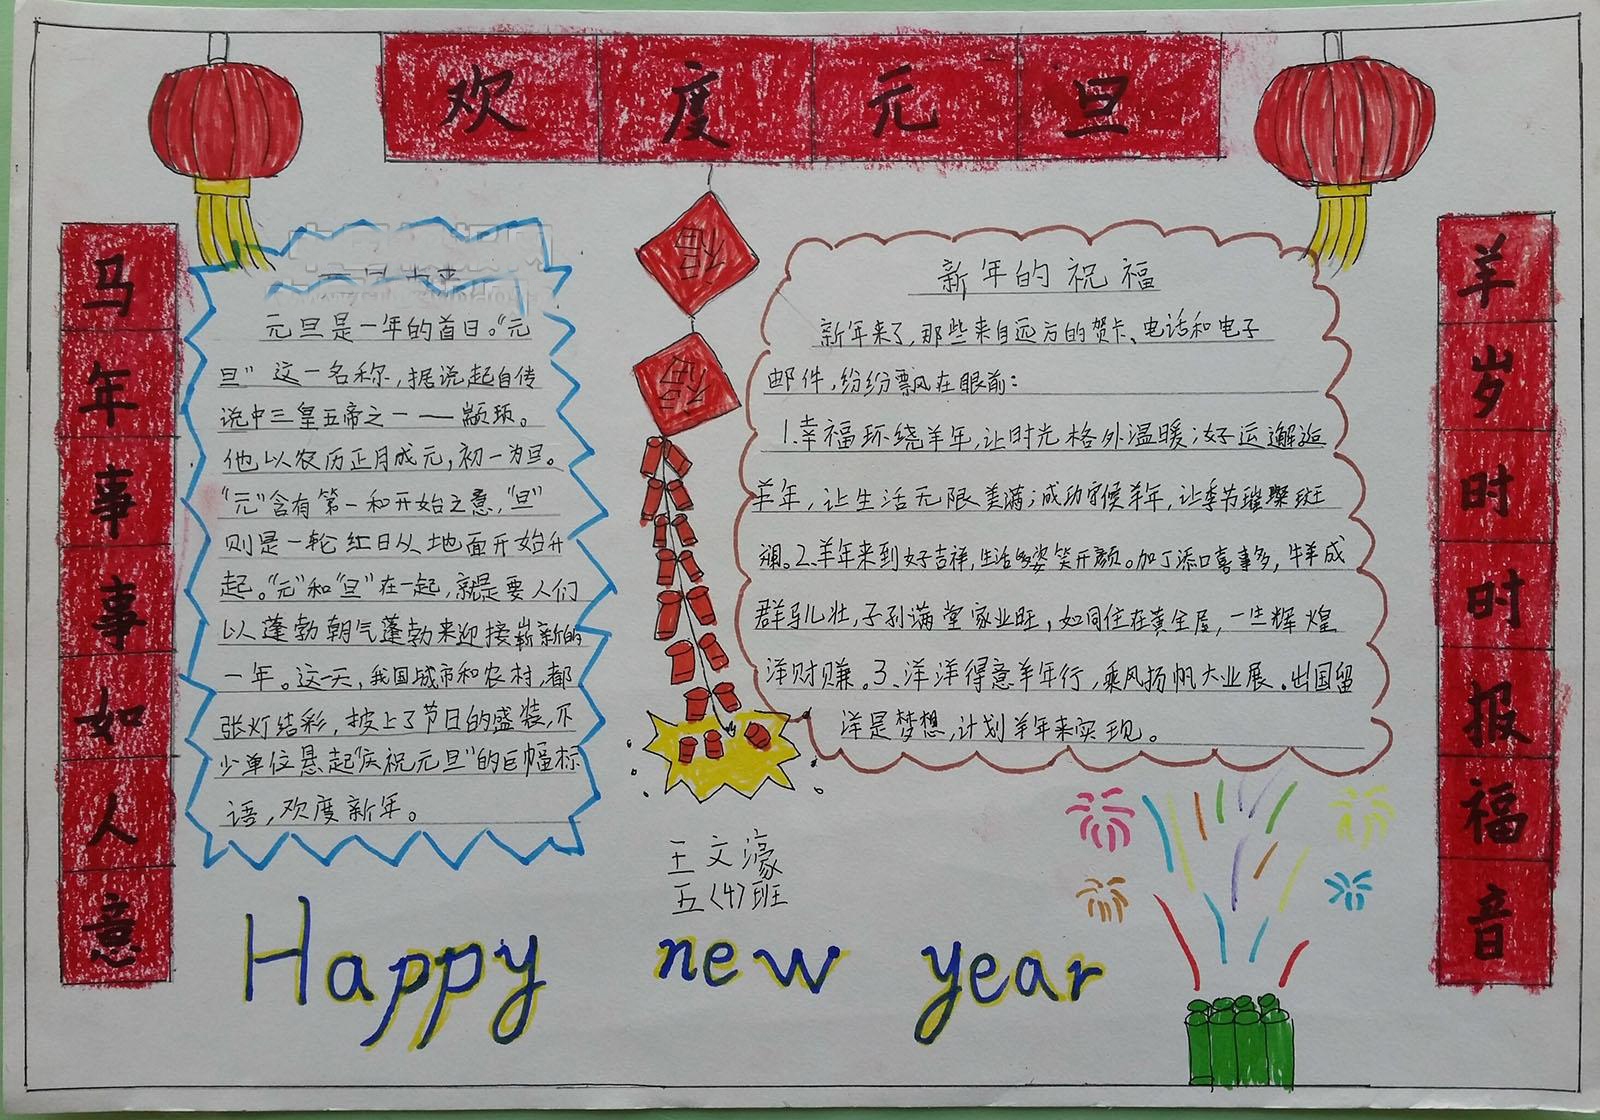 欢度元旦
马年事事如人意
福
福
元旦是一年的首日。“元
旦”这一名称,据说起自传
说中三皇五帝之一——颛顼。
他以农历正月成元,初一为旦。
“元”含有第一和开始之意,“旦”
则是一轮红日从地面开始升
起。“元”和“旦”在一起,就是要人们
以蓬勃朝气蓬勃来迎接崭新的
一年。这一天,我国城市和农村,都
张灯结彩,披上了节日的盛装,不
少单位悬起“庆祝元旦”的巨幅标
语,欢度新年。
新年的祝福
新年来了,那些来自远方的贺卡、电话和电子
邮件,纷纷飘在眼前:
1.幸福环绕羊年,让时光格外温暖;好运邂逅
羊年,让生活无限美满;成功守候羊年,让季节璀璨斑
斓。2.羊年来到好吉祥,生活多姿笑开颜。加丁添口喜事多,牛羊成
群马儿壮,子孙满堂家业旺,如同住在黄金屋,一生辉煌
洋财赚。3、洋洋得意羊年行,乘风扬帆大业展。出国留
洋是梦想,计划羊年来实现。
羊岁时时报福音
王文濠
五〈4〉班
Happy new year